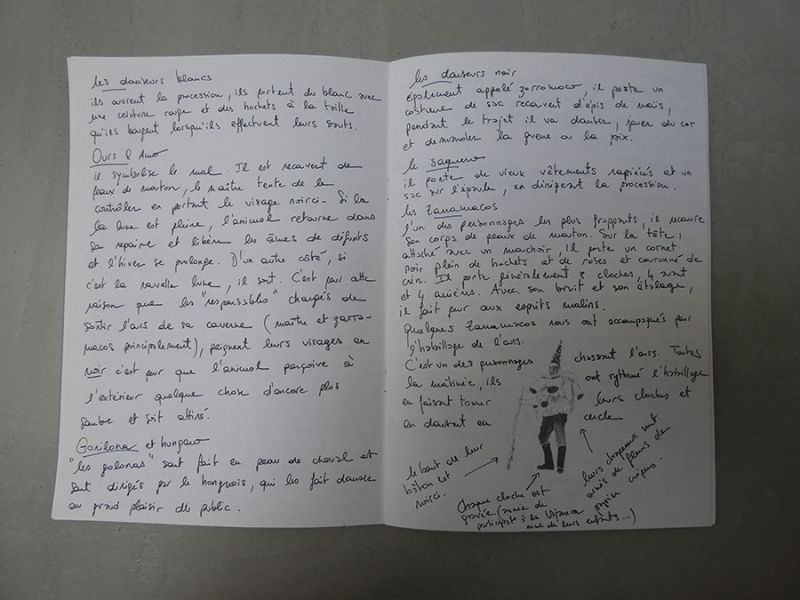 les danseurs blancs
ils ouvrent la procession, ils portent du blanc avec
une ceinture rouge et des hochets à la taille
qu'ils bougent lorsqu'ils effectuent leurs sauts.
Ours & Amo
il symbolise le mal. Il est recouvert de
peaux de mouton, le maître tente de le
contrôler en portant le visage noirci. Si
la lune est pleine, l'animal retourne dans
sa repaire et libère les âmes de défunts
et l'hiver se prolonge. D'un autre côté, si
c'est la nouvelle lune, il sort. C'est pour cette
raison que les "responsables" chargés de
sortir l'ours de sa caverne (maître et zarra-
macos principalement), peignent leurs visages en
noir c'est pour que l'animal perçoive à
l'extérieur quelque chose d'encore plus
sombre et soit attiré.
Gorilona et hungaro
"les golonas" sont fait en peau de cheval et
sont dirigés par le hongrois, qui les fait danser
au grand plaisir du public.
les danseurs noir
également appelé zorromoco, il porte un
costume de sac recouvert d'épis de maïs,
pendant le trajet il va danser, jouer du cor
et demander la guerre ou la paix.
le saquero
il porte de vieux vêtements rapiécés et un
sac sur l'épaule, en dirigeant la procession.
les Zanamacos
L'un des personnages les plus frappants, il recouvre
son corps de peaux de mouton. Sur la tête,
attaché avec un mouchoir, il porte un cornet
noir plein de hochets et de roses et couronné de
crin. Il porte généralement 8 cloches, 4 avant
et 4 arrières. Avec son bruit et son
il fait peur aux esprits malins.
Quelques Zanamacos nous ont accompagnés par
l'habillage de l'ours.
C'est un des personnages chassant l'ours. Toutes
la matinée, ils ont rythmé l'habillage
en faisant tourner leurs cloches et
en dansant en cercle
le haut de leur
bâton est
noirci.
Chaque cloche est
gravée (année de
participation à la Vijanera
nom de leurs enfants...)
leurs chapeaux sont
ornés de fleurs de
papier crépon.